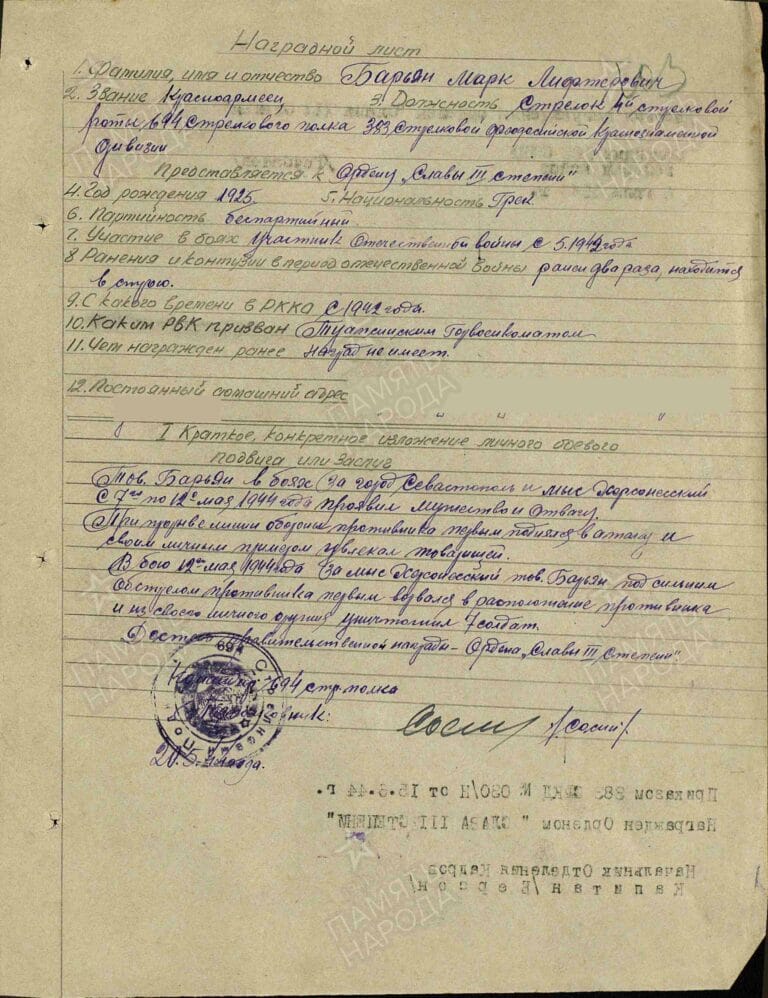 Наградной лист
1. Фамилия, имя и отчество Барьян Марк Лифтерович
2. Звание Красноармеец 3. Должность Стрелок 4й стрелковой
роты 694 Стрелкового полка 383 Стрелковой феодосийской Краснознаменной
дивизии
Представляется к Ордену „Славы III степени"
4. Год рождения 1925. 5. Национальность Грек
6. Партийность беспартийный
7. Участие в боях участник Отечественной войны с 5.1942 года
8 Ранения и контузии в период отечественной войны ранен два раза, находится
в строю.
9. С какого времени в РККА с 1942 годы.
10. Каким РВК призван Туапсинским Горвоенкоматом
11. Чем награжден ранее наград не имеет.
12. Постоянный домашний адрес
I Краткое, конкретное изложение личного боевого
подвига или заслуг
Тов. Барьян в боях за город Севастополь и мыс Херсонесский
с 7го по 12е мая 1944 года проявил мужество и отвагу.
При прорыве линии обороны противника первым поднялся в атаку и
своим личным примером увлекал товарищей.
В бою 12го мая 1944 года за мыс Херсонесский тов. Барьян под сильным
обстрелом противника первым ворвался в расположение противника
и из своего личного оружия уничтожил 7 солдат.
Достоин правительственной награды – Ордена „Славы III Степени".
Командир 694 стр. полка
/Сосин/.
Приказом 383 СКД № 030/Н от 15.6.44 г.
Награжден Орденом " СЛАВА III СТЕПЕНИ"
Начальник Отделения Кадров
Капитан /Берсон/
ПАМЯТЬ
НАРОДА